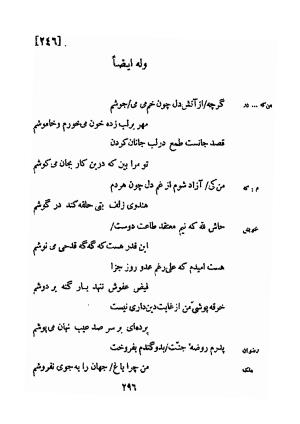 [۲۴۶]
وله ایضاً
گرچه/ از آتش دل چون خم می می/ جوشم
من که ... در
مهر بر لب زده خون می‌خورم و خاموشم
قصد جانست طمع در لب جانان کردن
تو مرا بین که درین کار بجان می‌کوشم
من کی/ آزاد شوم از غم دل چون هر دم
م : که
هندوی زلف بتی حلقه کند در گوشم
حاش لله که نیم معتقد طاعت دوست/
خویش
این قدر هست که گه‌گه قدحی می نوشم
هست امیدم که علی‌رغم عدو روز جزا
فیض عفوش ننهد بار گنه بر دوشم
خرقه پوشی من از غایت دین‌داری نیست
پرده‌ای بر سر صد عیب نهان می‌پوشم
پدرم روضهٔ جنّت/ بدو گندم بفروخت
رضوان
من چرا باغ/ جهان را به جوی نفروشم
ملک
۲۹۶